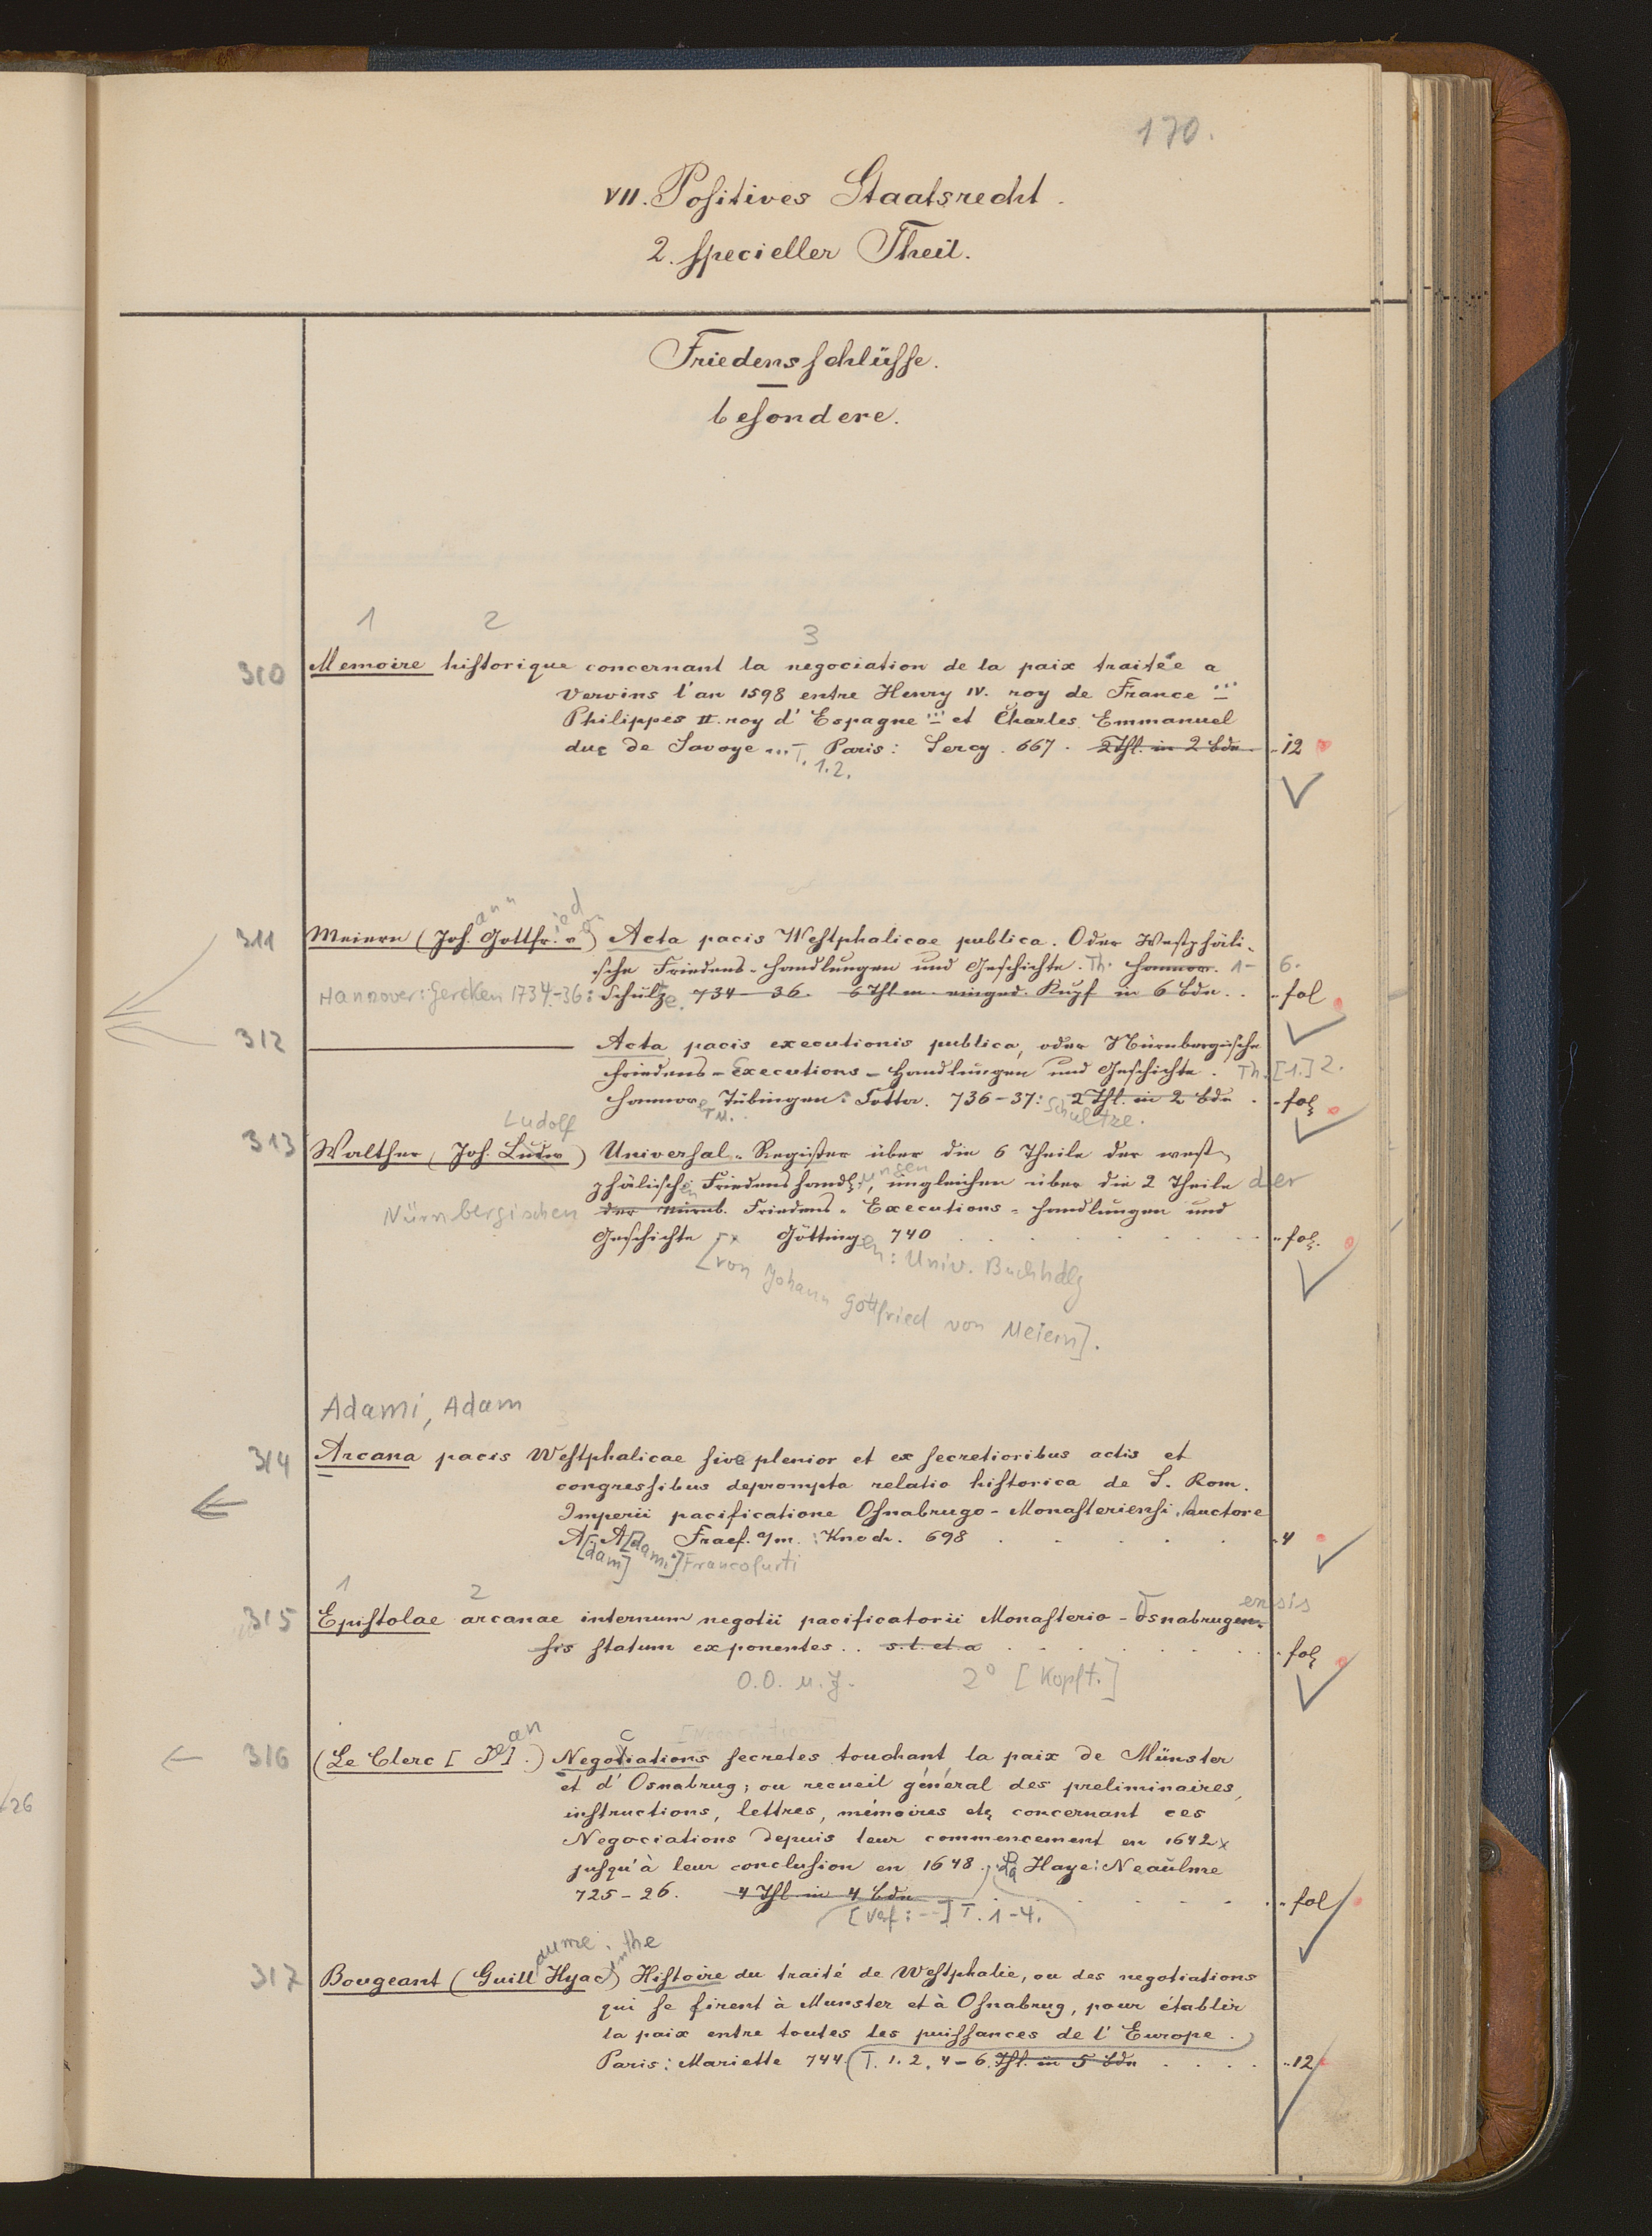 170.
VII. Positives Staatsrecht.
2. specieller Theil.
Friedensschlüsse.
besondere.
1 2 3
310 Memoire historique concernant la negociation de la paix traitée a
Vervins l'an 1598 entre Henry IV. roy de France ...
Philippes II. roy d'Espagne ... et Charles Emmanuel
duc de Savoye ... T. 1.2. Paris: Sercy. 667. 2 Thl. in 2 bdn - 12
311 Meiern (Johann Gottfried von) Acta pacis Westphalicae publica. Oder Westphäli-
sche Friedens-Handlungen und Geschichte. Th. Hannov. 1- 6.
Hannover: Gercken 1734-36: Schultze. 734-36. 6 Thl m. einged. Kupf in 6 bdn.. - fol
312 ——— Acta pacis executionis publica, oder Nürnbergische
Friedens-Executions-Handlungen und Geschichte. Th. [1.] 2.
Hannover u. Tübingen: Cotta. 736-37: Schultze. 2 Thl. in 2 bdn. - fol
313 Walther (Joh. Ludw Ludolf) Universal-Register über die 6 Theile der west-
phälischen Friedenshandlungen, ingleichen über die 2 Theile der
Nürnbergischen der Nürnb. Friedens-Executions-Handlungen und
Geschichte Göttingen: Univ. Buchhdlg 740 - fol.
[von Johann Gottfried von Meiern].
Adami, Adam
314 Arcana pacis Westphalicae sive plenior et ex secretioribus actis et
congressibus deprompta relatio historica de S. Rom.
Imperii pacificatione Osnabrugo-Monasteriensi. Auctore
A[dam] A[dami] Frcf. a/m.: Knoch. 698 - 4
Francofurti
1 2
315 Epistolae arcanae internum negotii pacificatorii Monasterio-Osnabrugen- ensis
sis statum exponentes.. s. l. et a - fol
O.O. u. J. 2° [Kopft.]
316 (Le Clerc [Jean].) Negociations secretes touchant la paix de Münster
et d'Osnabrug; ou recueil général des preliminaires,
instructions, lettres, mémoires etc concernant ces
Negociations depuis leur commencement en 1642
jusqu'à leur conclusion en 1648. La Haye: Neaulme
725-26. 4 Thl in 4 bdn - fol
[Verf: --] T. 1-4.
/26
317 Bougeant (Guillaume Hyacinthe) Histoire du traité de Westphalie, ou des negotiations
qui se firent à Munster et à Osnabrug, pour établir
la paix entre toutes les puissances de l'Europe.
Paris: Mariette 744. T. 1. 2. 4-6. Thl. in 5 bdn - 12